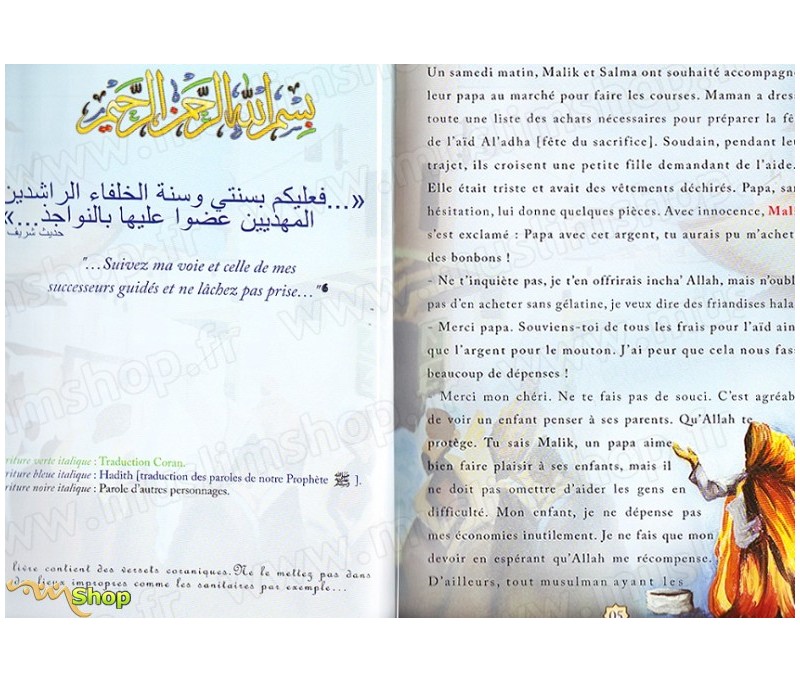 بسم الله الرحمن الرحيم
«...فعليكم بسنتي وسنة الخلفاء الراشدين
المهديين عضوا عليها بالنواجذ...»
حديث شريف
"...Suivez ma voie et celle de mes
successeurs guidés et ne lâchez pas prise..."6
riture verte italique : Traduction Coran.
riture bleue italique : Hadith [traduction des paroles de notre Prophète ﷺ ].
riture noire italique : Parole d'autres personnages.
livre contient des versets coraniques.Ne le mettez pas dans
lieux impropres comme les sanitaires par exemple...
Shop
Un samedi matin, Malik et Salma ont souhaité accompagn
leur papa au marché pour faire les courses. Maman a dres
toute une liste des achats nécessaires pour préparer la fê
de l'aïd Al'adha [fête du sacrifice]. Soudain, pendant le
trajet, ils croisent une petite fille demandant de l'aide.
Elle était triste et avait des vêtements déchirés. Papa, san
hésitation, lui donne quelques pièces. Avec innocence, Mali
s'est exclamé : Papa avec cet argent, tu aurais pu m'achet
des bonbons !
- Ne t'inquiète pas, je t'en offrirais incha' Allah, mais n'oubl
pas d'en acheter sans gélatine, je veux dire des friandises hala
- Merci papa. Souviens-toi de tous les frais pour l'aïd ain
que l'argent pour le mouton. J'ai peur que cela nous fass
beaucoup de dépenses !
Merci mon chéri. Ne te fais pas de souci. C'est agréab
de voir un enfant penser à ses parents. Qu'Allah te
protège. Tu sais Malik, un papa aime
bien faire plaisir à ses enfants, mais il
ne doit pas omettre d'aider les gens en
difficulté. Mon enfant, je ne dépense pas
mes économies inutilement. Je ne fais que mon
devoir en espérant qu'Allah me récompense.
D'ailleurs, tout musulman ayant les
05
www.muslimshop.fr